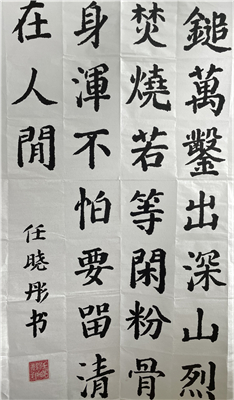 鎚萬鑿出深山烈
焚燒若等閑粉骨
身渾不怕要留清
在人閒
任晓彤书